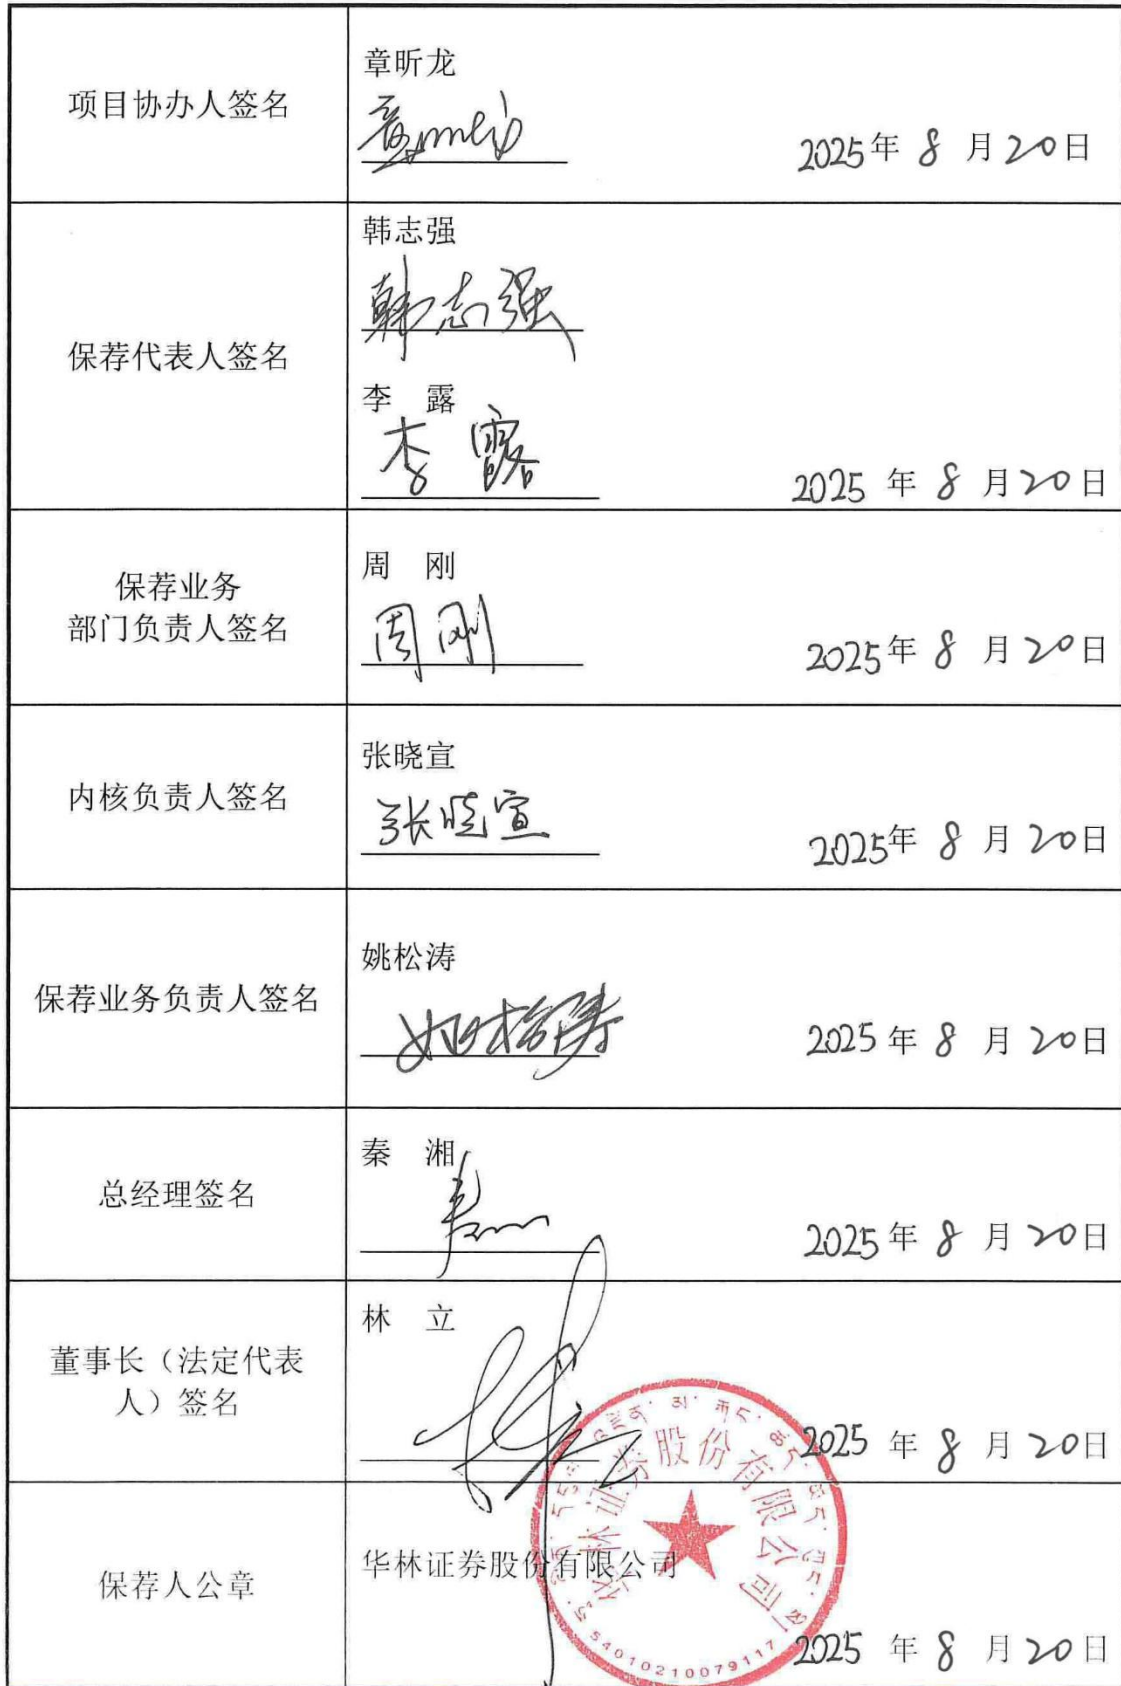 项目协办人签名
章昕龙
2025年 8 月20日
保荐代表人签名
韩志强
韩志强
李 露
李 露
2025 年 8 月20日
保荐业务
部门负责人签名
周 刚
周 刚
2025年 8 月20日
内核负责人签名
张晓宣
张晓宣
2025年 8 月20日
保荐业务负责人签名
姚松涛
姚松涛
2025 年 8 月20日
总经理签名
秦 湘
2025年 8 月20日
董事长（法定代表
人）签名
林 立
2025 年 8 月20日
保荐人公章
华林证券股份有限公司
华林证券股份有限公司
54010210079117
2025 年 8 月20日